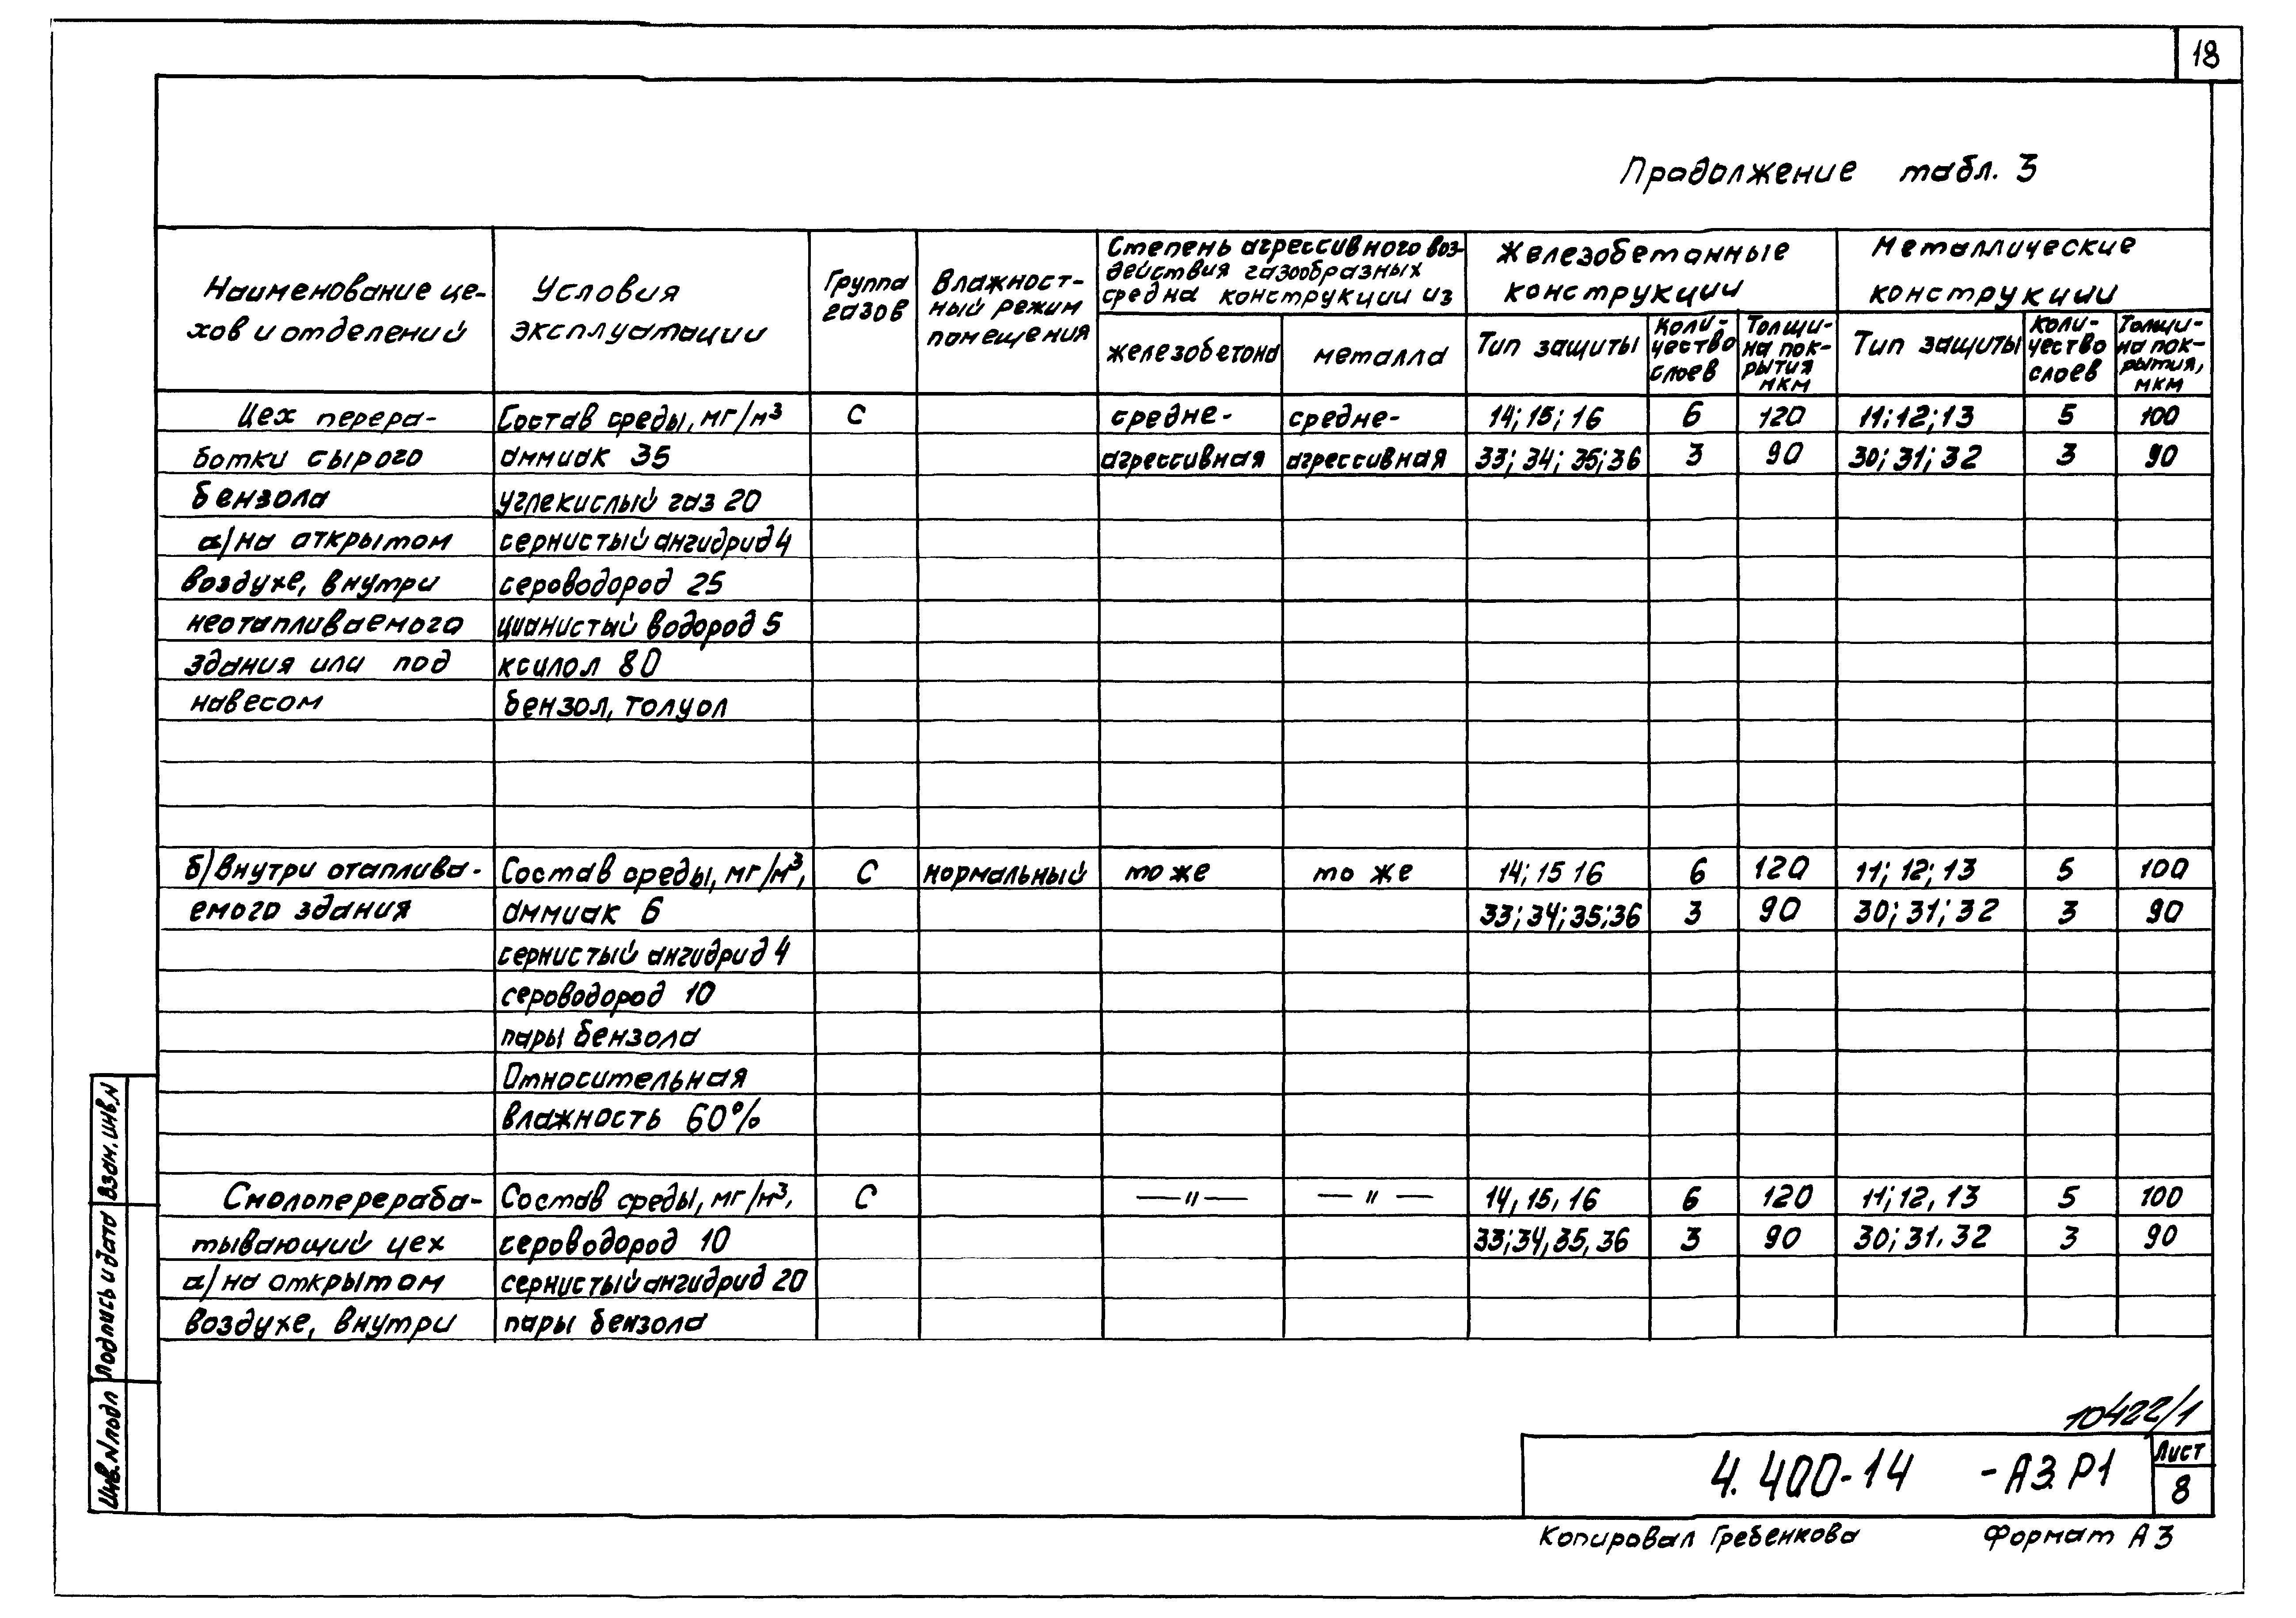 18
Продолжение табл. 3
Наименование це-
хов и отделений
Условия
эксплуатации
Группа
газов
Влажност-
ный режим
помещения
Степень агрессивного воз-
действия газообразных
сред на конструкции из
железобетона
металла
Железобетонные
конструкции
Тип защиты
Коли-
чество
слоев
Толщи-
на пок-
рытия
мкм
Металлические
конструкции
Тип защиты
Коли-
чество
слоев
Толщи-
на пок-
рытия,
мкм
Цех перера- Состав среды, мг/м³ С средне- средне- 14; 15; 16 6 120 11; 12; 13 5 100
ботки сырого аммиак 35 агрессивная агрессивная 33; 34; 35; 36 3 90 30; 31; 32 3 90
бензола углекислый газ 20
а/ на открытом сернистый ангидрид 4
воздухе, внутри сероводород 25
неотапливаемого цианистый водород 5
здания или под ксилол 80
навесом бензол, толуол
б/ внутри отаплива- Состав среды, мг/м³, С нормальный то же то же 14; 15 16 6 120 11; 12; 13 5 100
емого здания аммиак 6 33; 34; 35; 36 3 90 30; 31; 32 3 90
сернистый ангидрид 4
сероводород 10
пары бензола
Относительная
влажность 60%
Смолоперераба- Состав среды, мг/м³, С —"— —"— 14, 15, 16 6 120 11; 12, 13 5 100
тывающий цех сероводород 10 33; 34, 35, 36 3 90 30; 31. 32 3 90
а/ на открытом сернистый ангидрид 20
воздухе, внутри пары бензола
Взам. инв. N
Подпись и дата
Инв. N подл
10422/1
4.400-14 -АЗ.Р1
Лист
8
Копировал Гребенкова Формат А3